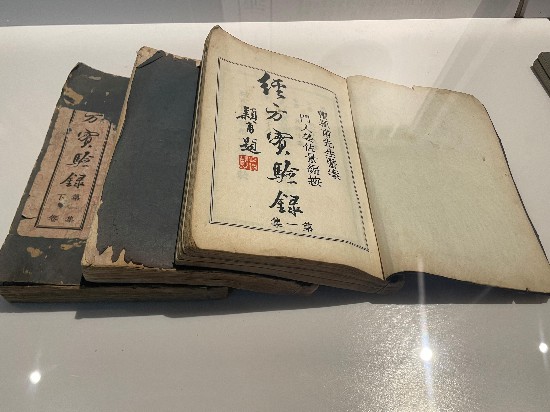 曹穎甫先生醫案
門人姜佐景編按
經方實驗錄
第一集
穎甫題
方實驗錄
下卷